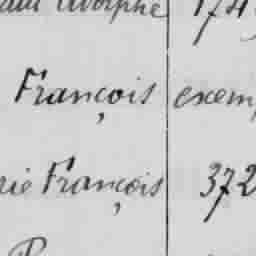 Adolphe 174
François exem
rie François 372